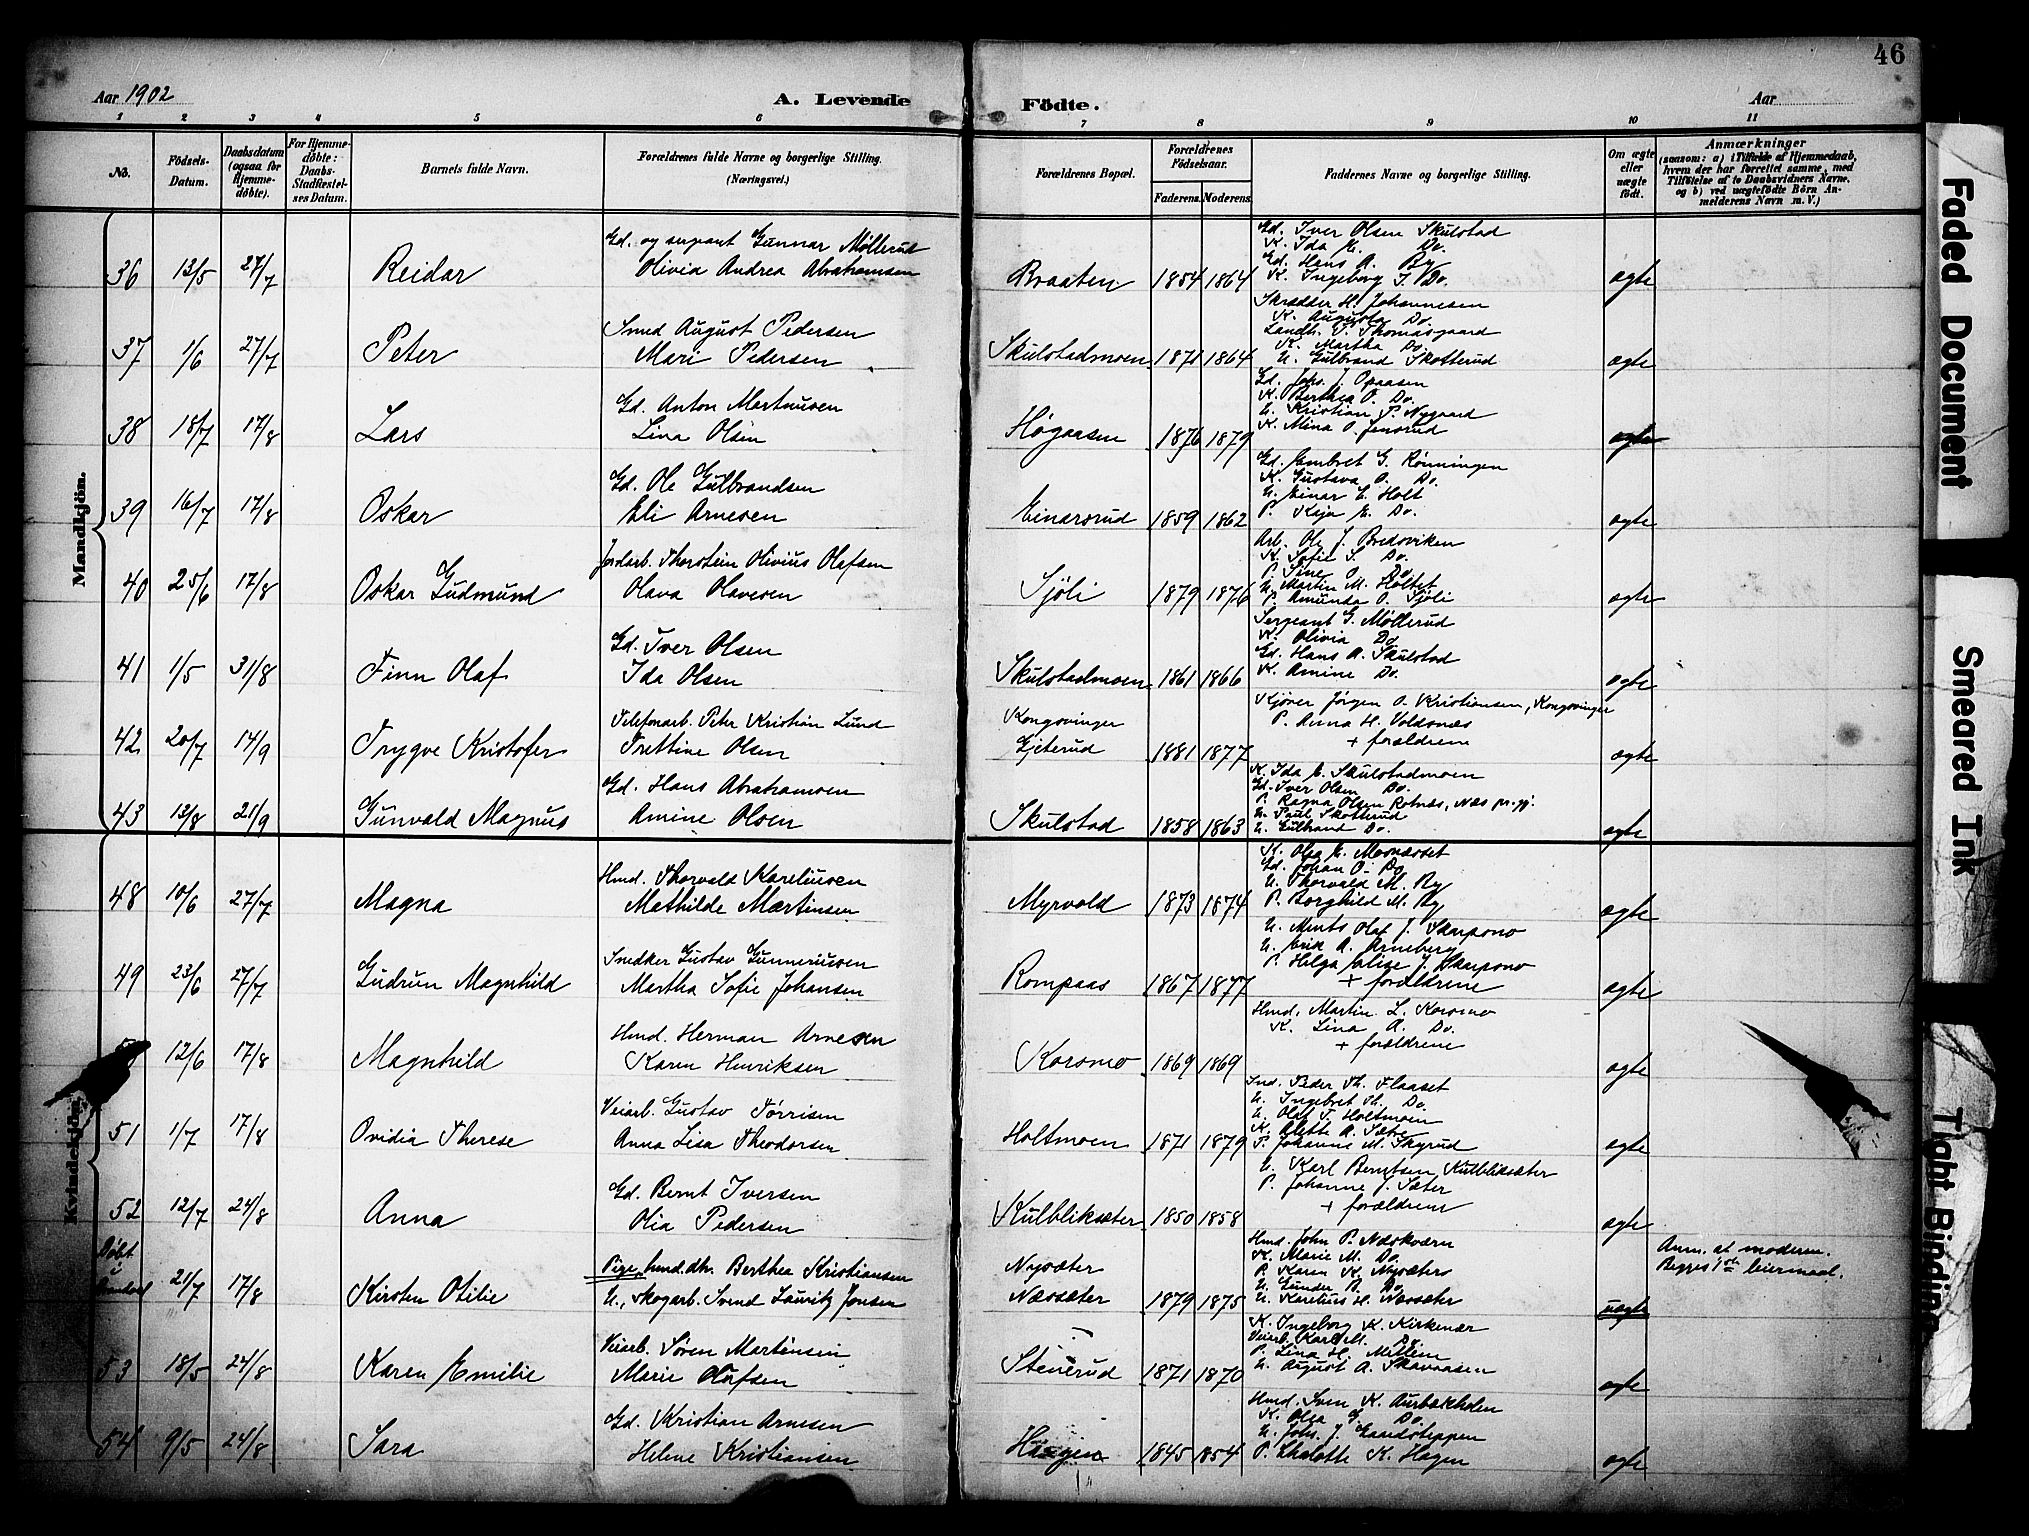 46
Aar 1902
A. Levende
Födte.
Aar
1 2 3 4 5 6 7 8 9 10 11
No.
Födsels-Datum.
Daabsdatum (ogsaa for Hjemme-döbte).
For Hjemme-döbte: Daabs-Stadfæstel-ses Datum.
Barnets fulde Navn.
Forældrenes fulde Navne og borgerlige Stilling.
(Næringsvei.)
Forældrenes Bopæl.
Forældrenes Födselsaar.
Faderens. Moderens.
Faddernes Navne og borgerlige Stilling.
Om ægte eller uægte födt.
Anmærkninger
(saasom: a) i Tilfælde af Hjemmedaab,
hvem der har forrettet samme, med
Tilföielse af to Daabsvidners Navne,
og b) ved uægtefödte Börn An-
melderens Navn m. V.)
Mandkjön.
36 13/5 27/7 Reidar
Gd. og sergeant Gunnar Møllerud
Olivia Andrea Abrahamsen
Braaten 1854 1864
Gd. Iver Olsen Skulstad
K. Ida E. Do.
Gd. Hans A. By
K. Ingeborg I. Do.
ægte
37 1/6 27/7 Peter
Smed August Pedersen
Mari Pedersen
Skulstadmoen 1871 1864
Skrædder H. Johannesen
K. Augusta Do.
Landh. T. Thomasgaard
K. Martha Do.
U. Gulbrand Skotterud
ægte
38 18/7 17/8 Lars
Gd. Anton Martinusen
Lina Olsen
Høgaasen 1876 1879
Gd. Johs. J. Opaasen
K. Berthea O. Do.
U. Kristian P. Nygaard
K. Mina O. Jensrud
ægte
39 16/7 17/8 Oskar
Gd. Ole Gulbrandsen
Eli Arnesen
Einarsrud 1859 1862
Gd. Embret G. Rønningen
K. Gustava O. Do.
U. Einar E. Holt
P. Kaja E. Do.
ægte
40 25/6 17/8 Oskar Gudmund
Jordarb. Thorstein Olivius Olafsen
Olava Olavesen
Sjöli 1879 1876
Arb. Ole J. Bredsviken
K. Sofie S. Do.
P. Sine O. Do.
U. Martin M. Holtet
P. Amunda O. Sjöli
ægte
41 1/5 31/8 Finn Olaf
Gd. Iver Olsen
Ida Olsen
Skulstadmoen 1861 1866
Sergeant G. Møllerud
K. Olivia Do.
Gd. Hans A. Skulstad
K. Amine Do.
ægte
42 20/7 14/9 Trygve Kristofer
Telefonarb. Peter Kristian Lund
Trettine Olsen
Kongsvinger
Gjeterud 1881 1877
Kjører Jørgen O. Kristiansen, Kongsvinger
P. Anna H. Voldsnæs
+ forældrene
ægte
43 13/8 21/9 Gunvald Magnus
Gd. Hans Abrahamsen
Amine Olsen
Skulstad 1858 1863
K. Ida E. Skulstadmoen
Gd. Iver Olsen Do.
P. Ragna Olsen Rotnæs, Næs pr.gj.
U. Paul Skotterud
U. Gulbrand Do.
ægte
Kvindekjön.
48 10/6 27/7 Magna
Hmd. Thorvald Kareliusen
Mathilde Martinsen
Myrvold 1873 1874
K. Olea E. Mosnæsset
Gd. Johan O. Do.
U. Thorvald M. By
P. Borghild M. By
ægte
49 23/6 27/7 Gudrun Magnhild
Snedker Gustav Gunneriusen
Martha Sofie Johansen
Rompaas 1867 1877
U. Ments Olaf J. Skarpsno
U. Erik A. Arneberg
P. Helga Jalise J. Skarpsno
+ forældrene
ægte
12/6 17/8 Magnhild
Hmd. Herman Arnesen
Karen Henriksen
Korsmo 1869 1869
Hmd. Martin L. Korsmo
K. Lina A. Do.
+ forældrene
ægte
51 1/7 17/8 Ovidia Therese
Veiarb. Gustav Tørrisen
Anna Lisa Theodorsen
Holtmoen 1871 1879
Ind. Peder Th. Flaaset
U. Ingebret Th. Do.
U. Olaf T. Holtmoen
K. Alette A. Sætre
P. Johanne M. Skyrud
ægte
52 12/7 24/8 Anna
Gd. Bernt Iversen
Olia Pedersen
Kulbliksæter 1850 1858
U. Karl Berntsen Kulbliksæter
P. Johanne J. Sæter
+ forældrene
ægte
Døbt
21/7 17/8 Kirsten Otilie
Pige, hmd.dtr. Berthea Kristiansen
U., skogarb. Svend Lauritz Jensen
Nysæter
Næssæter 1879 1875
Hmd. John P. Næskværn
K. Marie M. Do.
P. Karen K. Nysæter
U. Gunder B. Do.
U. Karelius H. Næssæter
uægte
Anm. at moderen.
Begges 1ste leiermaal.
53 18/5 24/8 Karen Emilie
Veiarb. Søren Martinsen
Marie Olafsen
Stenerud 1871 1870
K. Ingeborg K. Kirkenær
Veiarb. Karl M. Do.
P. Lina H. Mellem
U. August A. Skavaasen
ægte
54 9/5 24/8 Sara
Gd. Kristian Arnesen
Helene Kristiansen
Haagen 1845 1854
Hmd. Sven K. Aurbækholen
K. Olea G. Do.
U. Johs. J. Sandsteppen
P. Charlotte K. Hagen
ægte
Faded Document
Smeared Ink
Tight Binding